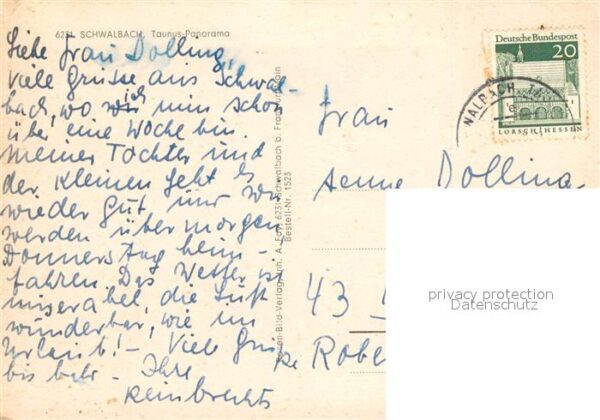 6231 SCHWALBACH, Taunus-Panorama
Liebe Frau Dolling,
viele Grüsse aus Schwal-
bach, wo ich nun schon
über eine Woche bin.
Meiner Tochter und
der Kleinen geht es
wieder gut und wir
werden übermorgen
Donnerstag heim-
fahren. Das Wetter ist
miserabel, die Luft
wunderbar, wie im
Urlaub! - Viele Grüsse
bis bald - Ihre
Reinbrechts
6231 Schwalbach b. Fra
Bestell-Nr. 1523
Deutsche Bundespost
20
LORSCH/HESSEN
WALBACH
Frau
Dolling
43
Robe
privacy protection
Datenschutz